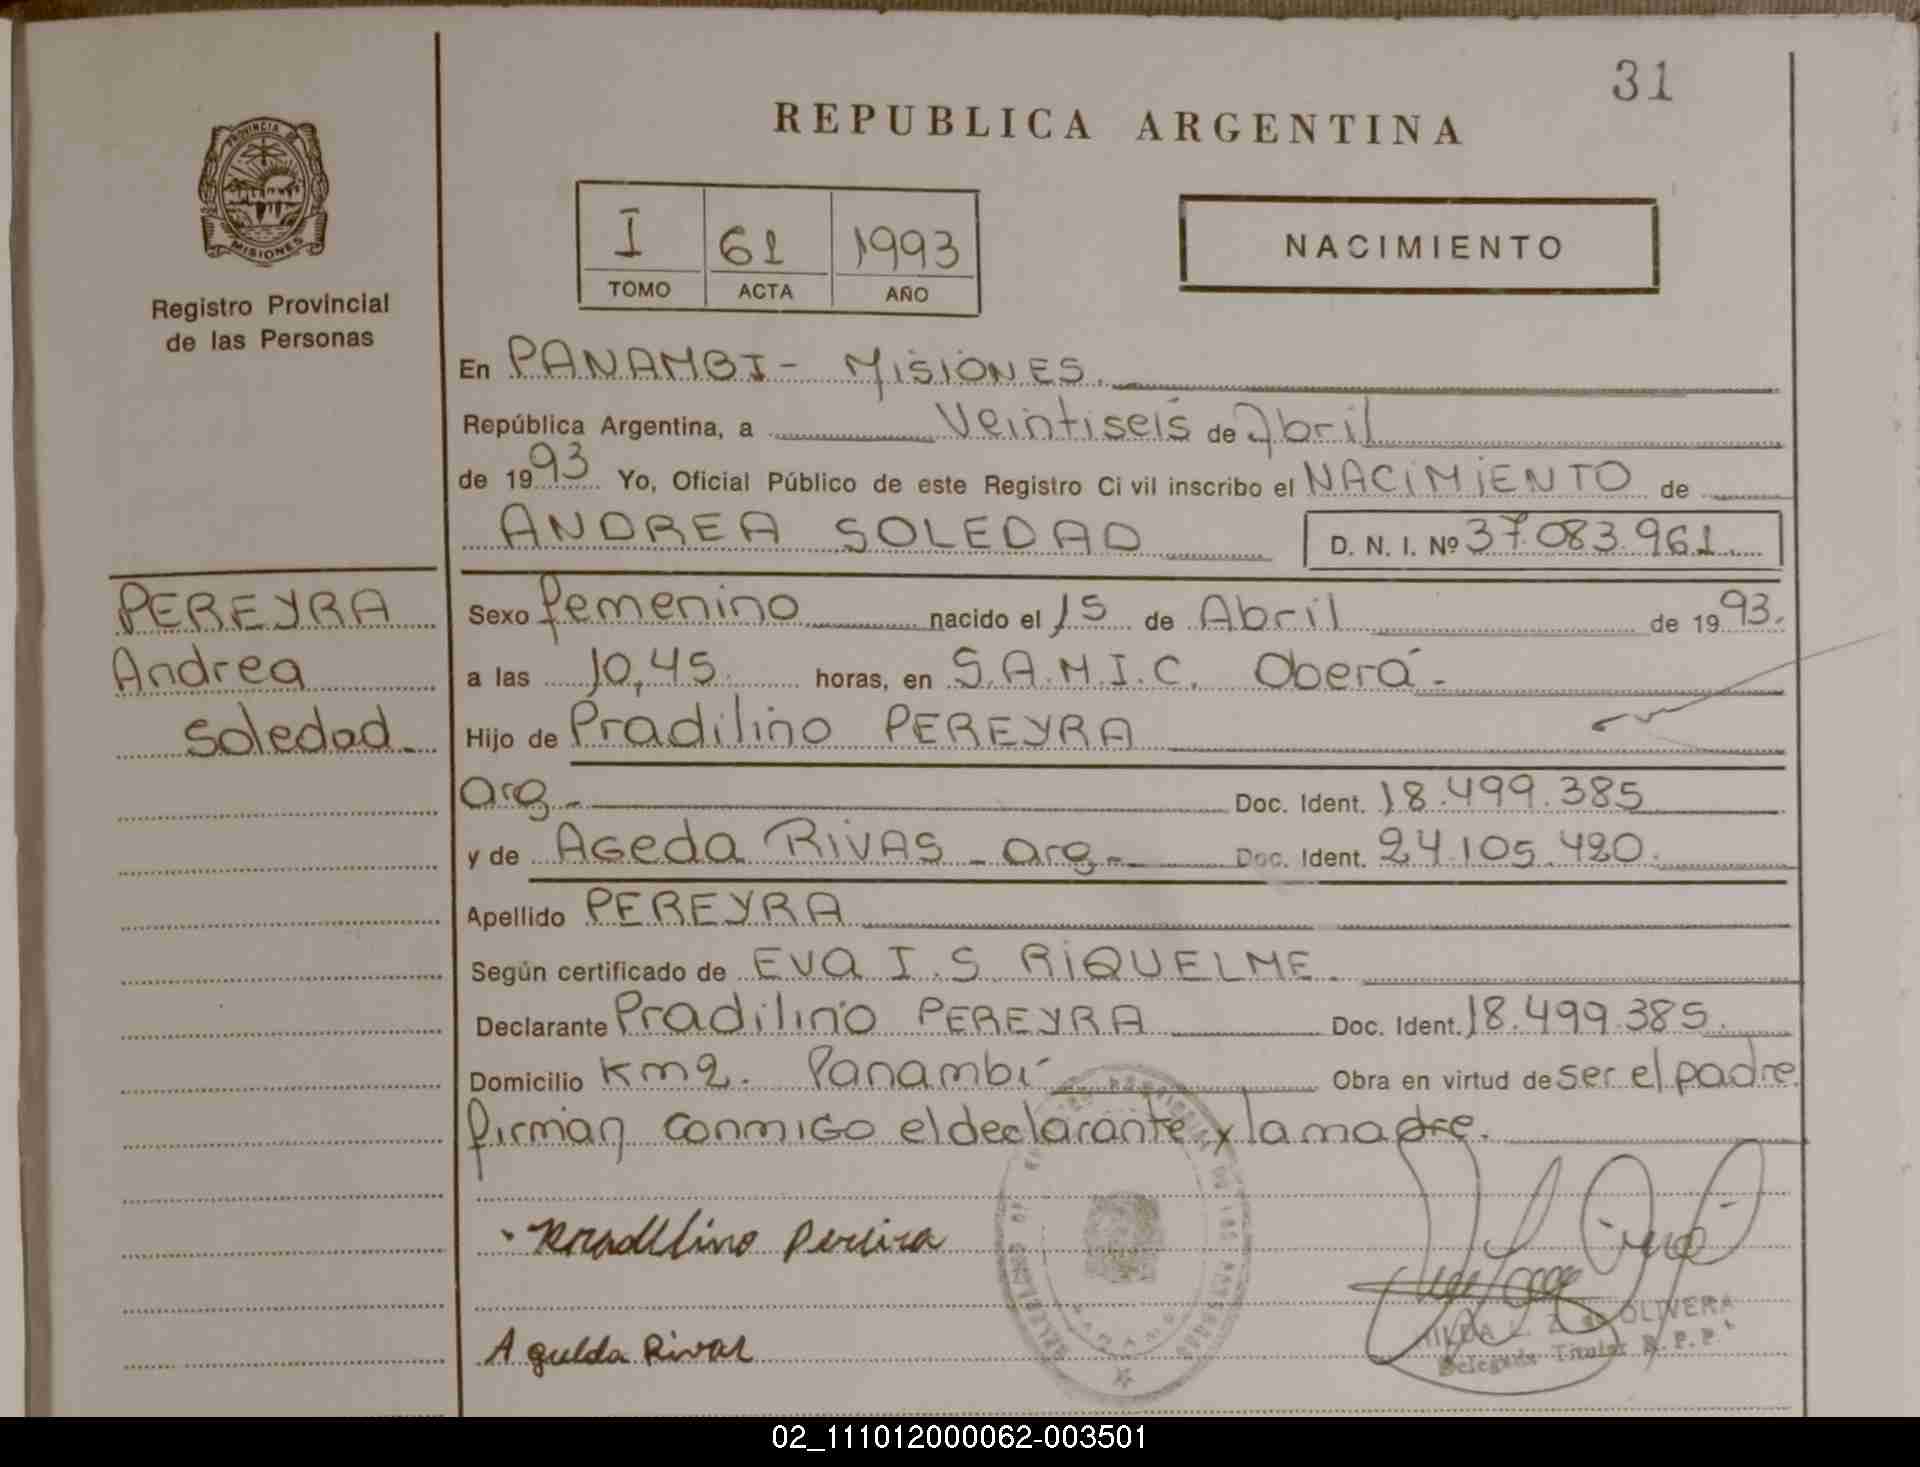 31
REPUBLICA ARGENTINA
PROVINCIA DE
MISIONES
Registro Provincial
de las Personas
I 61 1993
TOMO ACTA AÑO
NACIMIENTO
En PANAMBI - MISIONES.
República Argentina, a Veintiseis de Abril
de 1993 Yo, Oficial Público de este Registro Ci vil inscribo el NACIMIENTO de
ANDREA SOLEDAD D. N. I. Nº 37.083.961
PEREYRA
Andrea
Soledad.
Sexo femenino nacido el 15 de Abril de 1993.
a las 10,45. horas, en S.A.M.I.C. Oberá -
Hijo de Pradilino PEREYRA
arg - Doc. Ident. 18.499.385
y de AGEDA RIVAS - arg - Doc. Ident. 24.105.420.
Apellido PEREYRA
Según certificado de EVA I.S RIQUELME.
Declarante Pradilino PEREYRA Doc. Ident. 18.499.385.
Domicilio Km 2. Panambí Obra en virtud de ser el padre
firman conmigo el declarante y la madre.
Pradilino Pereira
Aguelda Rivas
OLIVERA
Delegada Titular R.P.P.
02_111012000062-003501